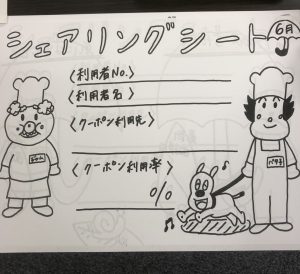 シェアリングシート
6月
〈利用者No.〉
〈利用者名〉
〈クーポン利用先〉
〈クーポン利用率〉
%